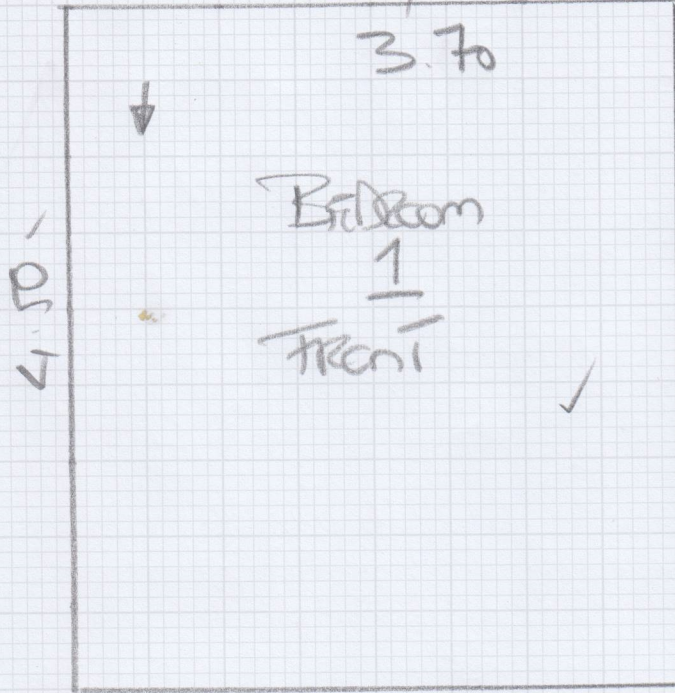 3.70
Bedroom
1
Front
4.50